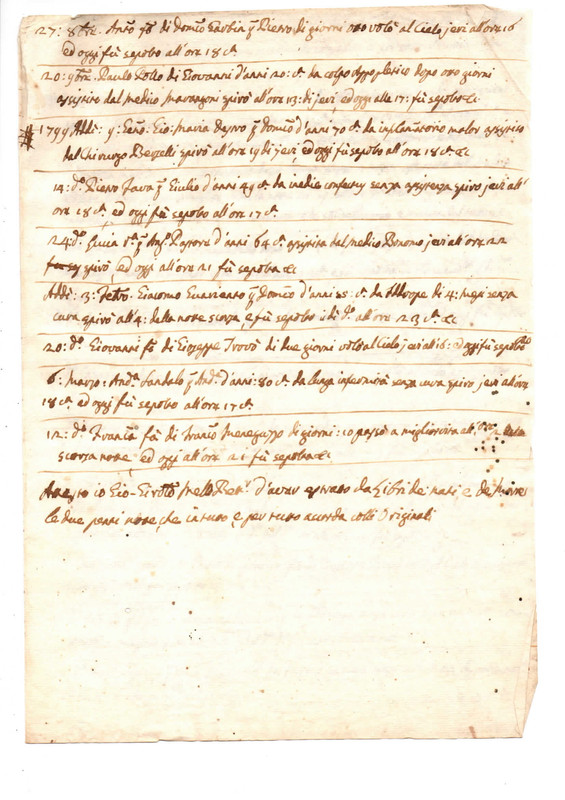 27: 8bre. Anto. fo. di Domco. Garbia q. Pietro di giorni otto volò al Cielo jeri all'ora 16
ed oggi fù sepolto all'ore 18 ca.
20: 9bre. Paulo Rollo di Giovanni d'anni 20: ca. da colpo appopletico dopo otto giorni
assistito dal Medico Marangoni spirò all'ore 13: di jeri ed oggi alle 17: fù sepolto &c
# 1799 Addì: 9: Geno. Gio: Maria q. Domco. d'anni 70 ca. da inflamatorio malor assistito
dal Chirurgo Bezzelli spirò all'ore 19 di jeri, ed oggi fù sepolto all'ore 18 ca. &c
14: do. Pietro Fava q. Giulio d'anni 49 ca. da inedie senza assistenza spirò jeri all'
ora 18 ca. ed oggi fù sepolto all'ore 17 ca.
24: do. Lucia q. Ango. d'anni 64 ca. assistita dal Medico Bonomo jeri all'ora 22
spirò, ed oggi all'ore 21 fù sepolta &c
Addì: 3: Febro. Giacomo Guariento q. Domco. d'anni 55 ca. da Idrope di 4: mesi senza
cura spirò all'4: della notte scorsa, e fù sepolto i di do. all'ore 23 ca. &c
20: do. Giovanni fo. di Gioseppe Trovò di due giorni volò al Cielo jeri all'16: ed oggi fù sepolto
6: Marzo: Anda. Gandalo q. Anda. d'anni: 80 ca. da lunga infermità senza cura spirò jeri all'ora
18 ca. ed oggi fù sepolto all'ore 17 ca.
12: do. Franca. fa. di Franco. Menegazzo di giorni: 10 passò a miglior vita all'ore
scorsa notte, ed oggi all'ore 21 fù sepolta &c
Attesto io Gio: Girolo. d'aver estratto da Libri de nati, e de morti
le due note, che in tutto, e per tutto accorda colli Originali